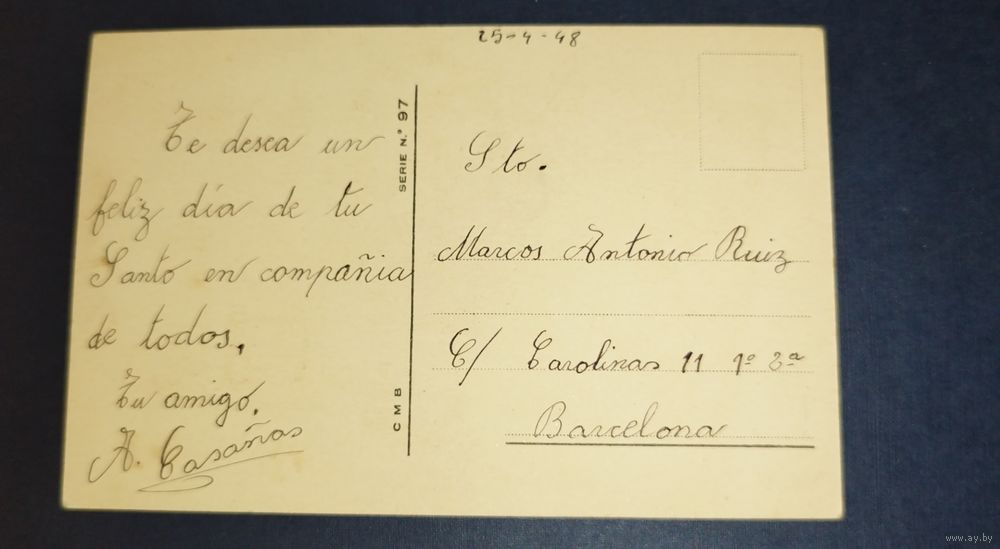 25-4-48
Te desea un
feliz día de tu
Santo en compañia
de todos.
Tu amigo,
A. Casañas
SERIE N.º 97
C M B
Sto.
Marcos Antonio Ruiz
C/ Carolinas 11 1º 2ª
Barcelona
www.ay.by